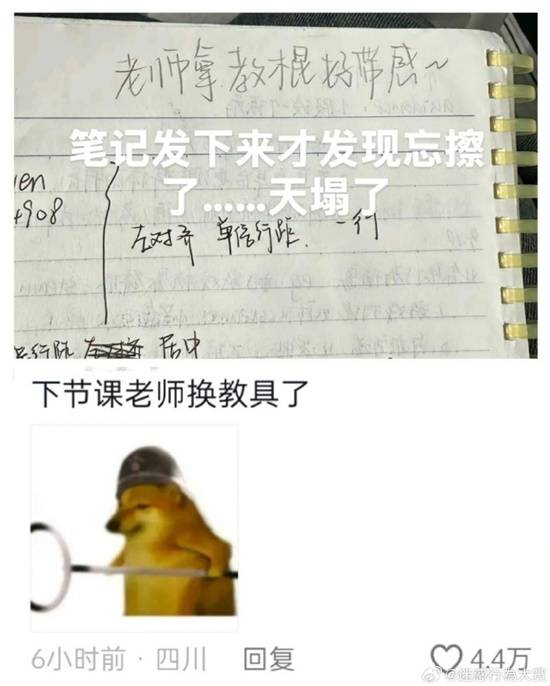 老师拿教棍好带感~
笔记发下来才发现忘擦
了……天塌了
len
+908
左对齐 单倍行距、一行
居中
下节课老师换教具了
6小时前 · 四川 回复 4.4万
@迷惑行为大赏